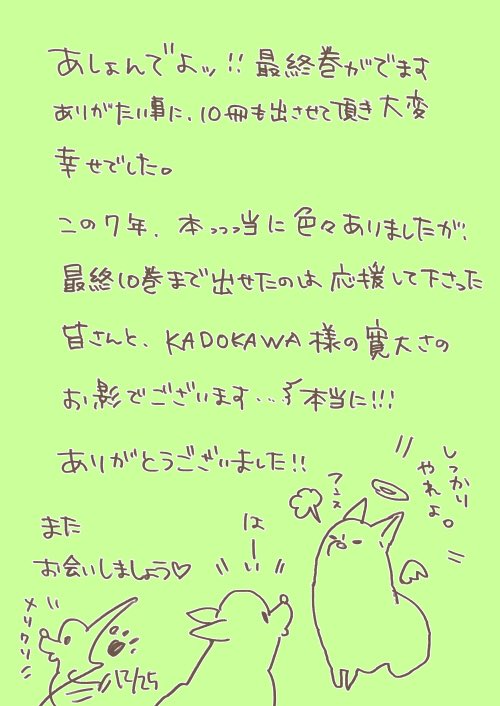 あしょんでよッ!! 最終巻がでます
ありがたい事に、10冊も出させて頂き 大変
幸せでした。
この7年、本っっっ当に 色々ありましたが、
最終10巻まで出せたのは 応援して下さった
皆さんと、KADOKAWA様の寛大さの
お影でございます… 本当に!!!
ありがとうございました!!
また
お会いしましょう♡
しっかり
やれよ。
はーい
メリクリ
12/25